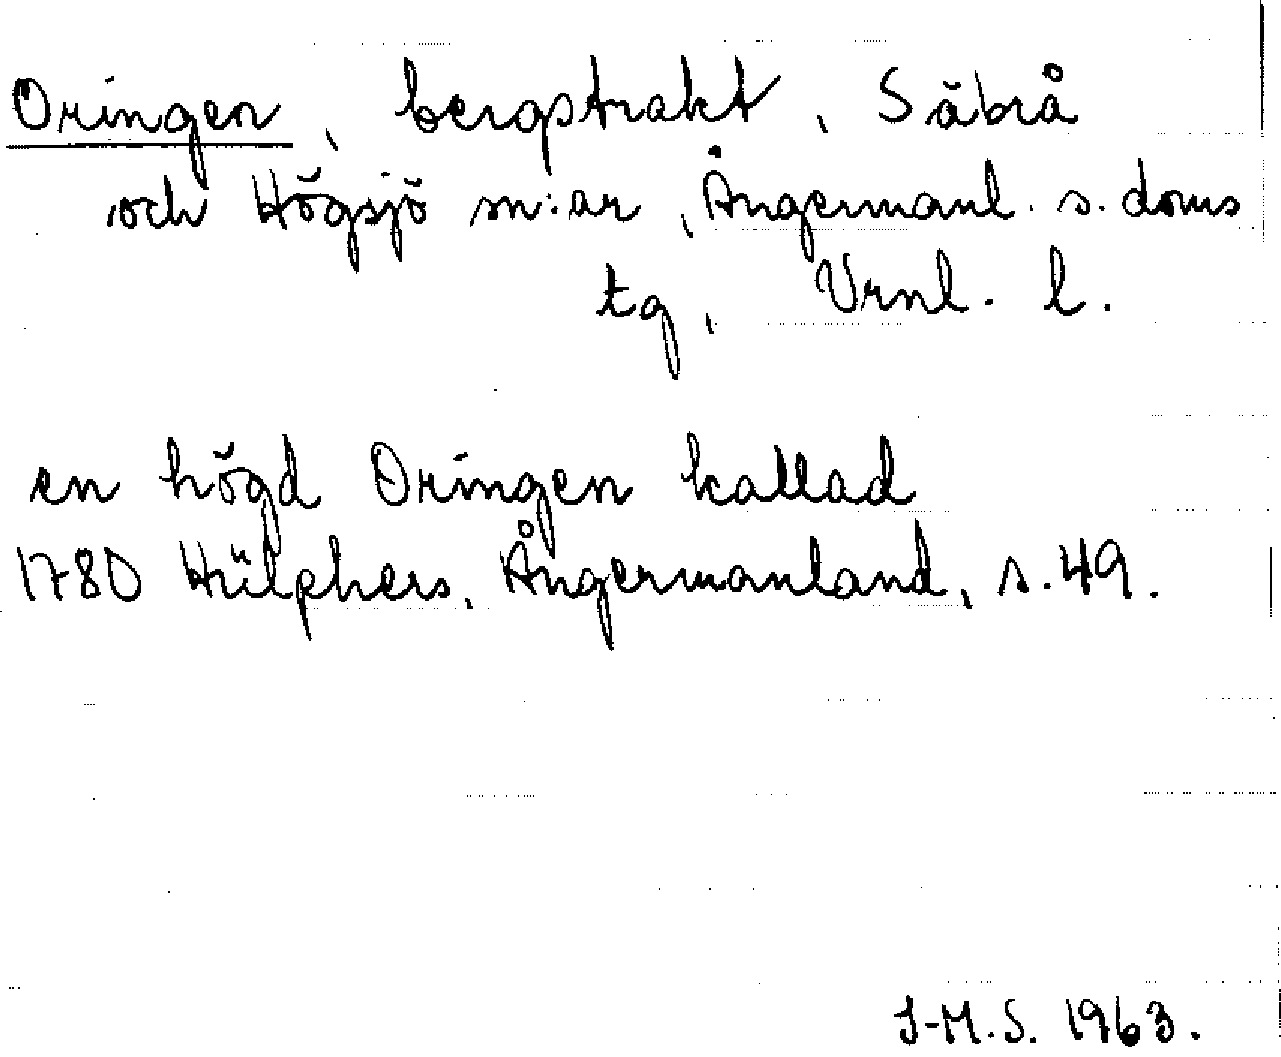 Oringen, bergstrakt, Säbrå
och Högsjö sn:ar, Ångermanl. s. doms
tg, Vrnl. l.
en högd Oringen kallad
1780 Hülphers, Ångermanland, s. 49.
I-M.S. 1963.